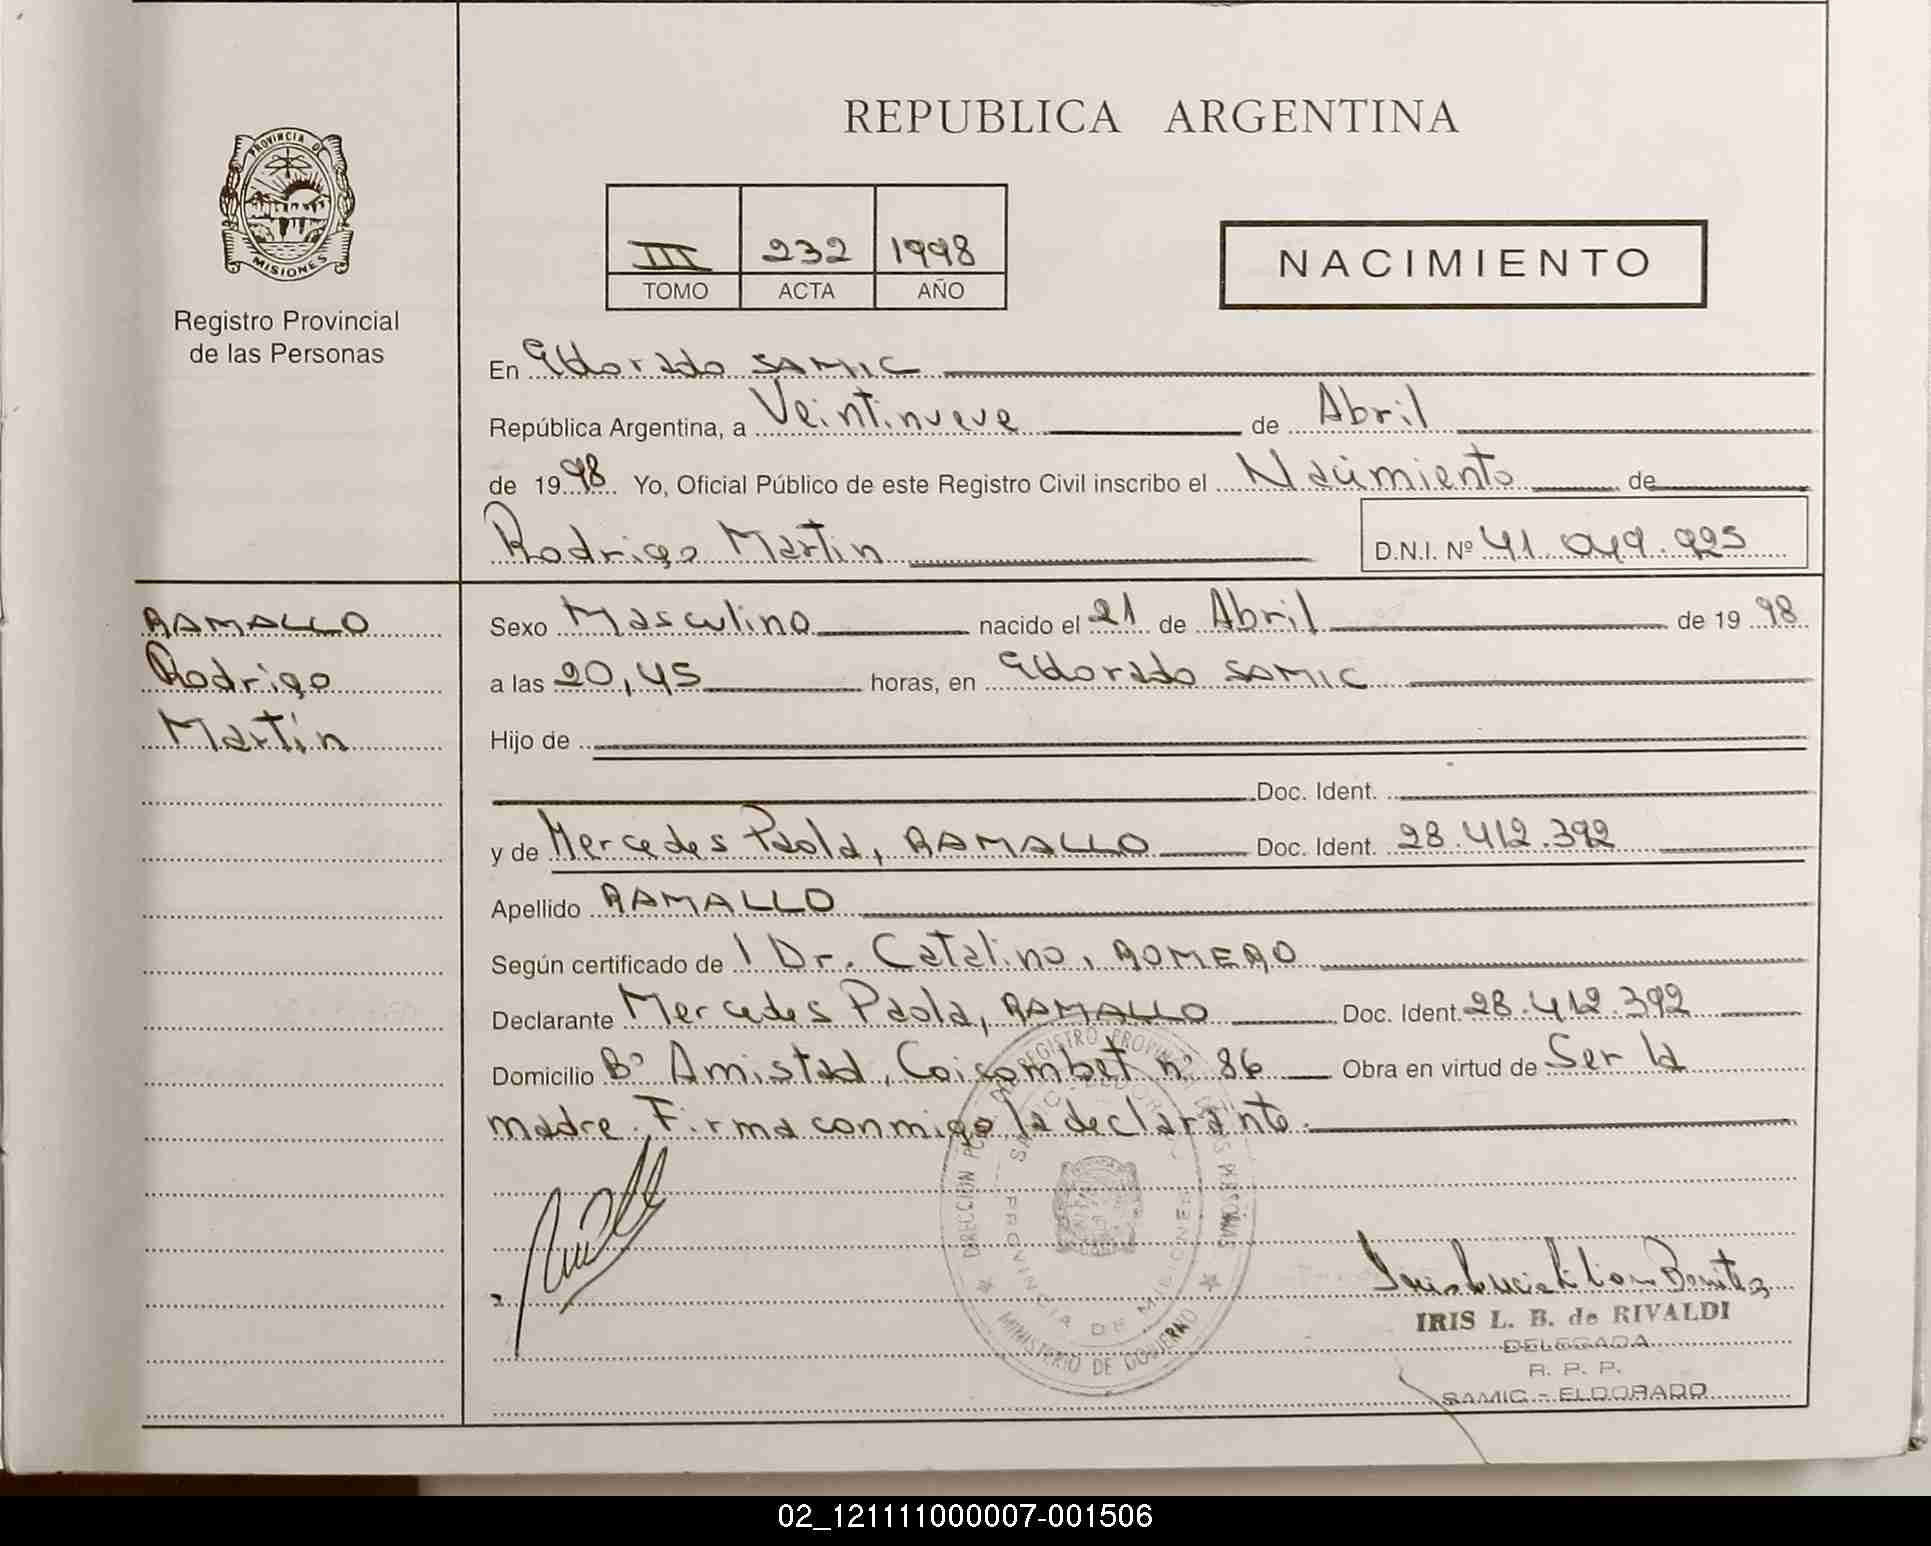 REPUBLICA ARGENTINA
PROVINCIA DE
MISIONES
Registro Provincial
de las Personas
III 232 1998
TOMO ACTA AÑO
NACIMIENTO
En Eldorado SAMIC
República Argentina, a Veintinueve de Abril
de 1998 Yo, Oficial Público de este Registro Civil inscribo el Nacimiento de
Rodrigo Martín D.N.I. Nº 41.049.925
RAMALLO
Rodrigo
Martín
Sexo Masculino nacido el 21 de Abril de 1998
a las 20,45 horas, en Eldorado SAMIC
Hijo de
Doc. Ident.
y de Mercedes Paola, RAMALLO Doc. Ident. 28.412.392
Apellido RAMALLO
Según certificado de l Dr. Catalino, ROMERO
Declarante Mercedes Paola, RAMALLO Doc. Ident. 28.412.392
Domicilio Bº Amistad, Coigombet nº 86 Obra en virtud de Ser la
madre. Firma conmigo la declarante.
PROVINCIA DE MISIONES
MINISTERIO DE GOBIERNO
IRIS L. B. de RIVALDI
DELEGADA
R. P. P.
SAMIC - ELDORADO
02_121111000007-001506